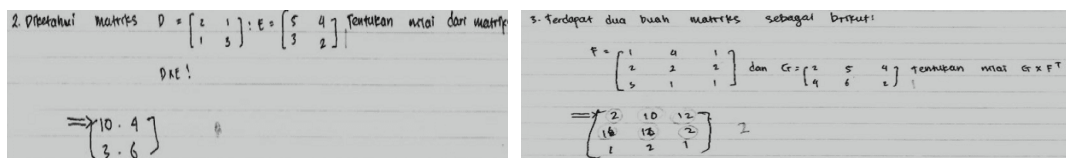 2. Diketahui matriks D = [2 1 : E = [5 4 Tentukan nilai dari matriks
1 3] 3 2]
DXE !
=> [10 . 4
3 . 6]
3. Terdapat dua buah matriks sebagai brikut:
F = [1 4 1
2 2 2 dan G = [2 5 4 Tentukan nilai G x Fᵀ
3 1 1] 4 6 2]
=> [2 10 12
18 2
1 2 1]
2